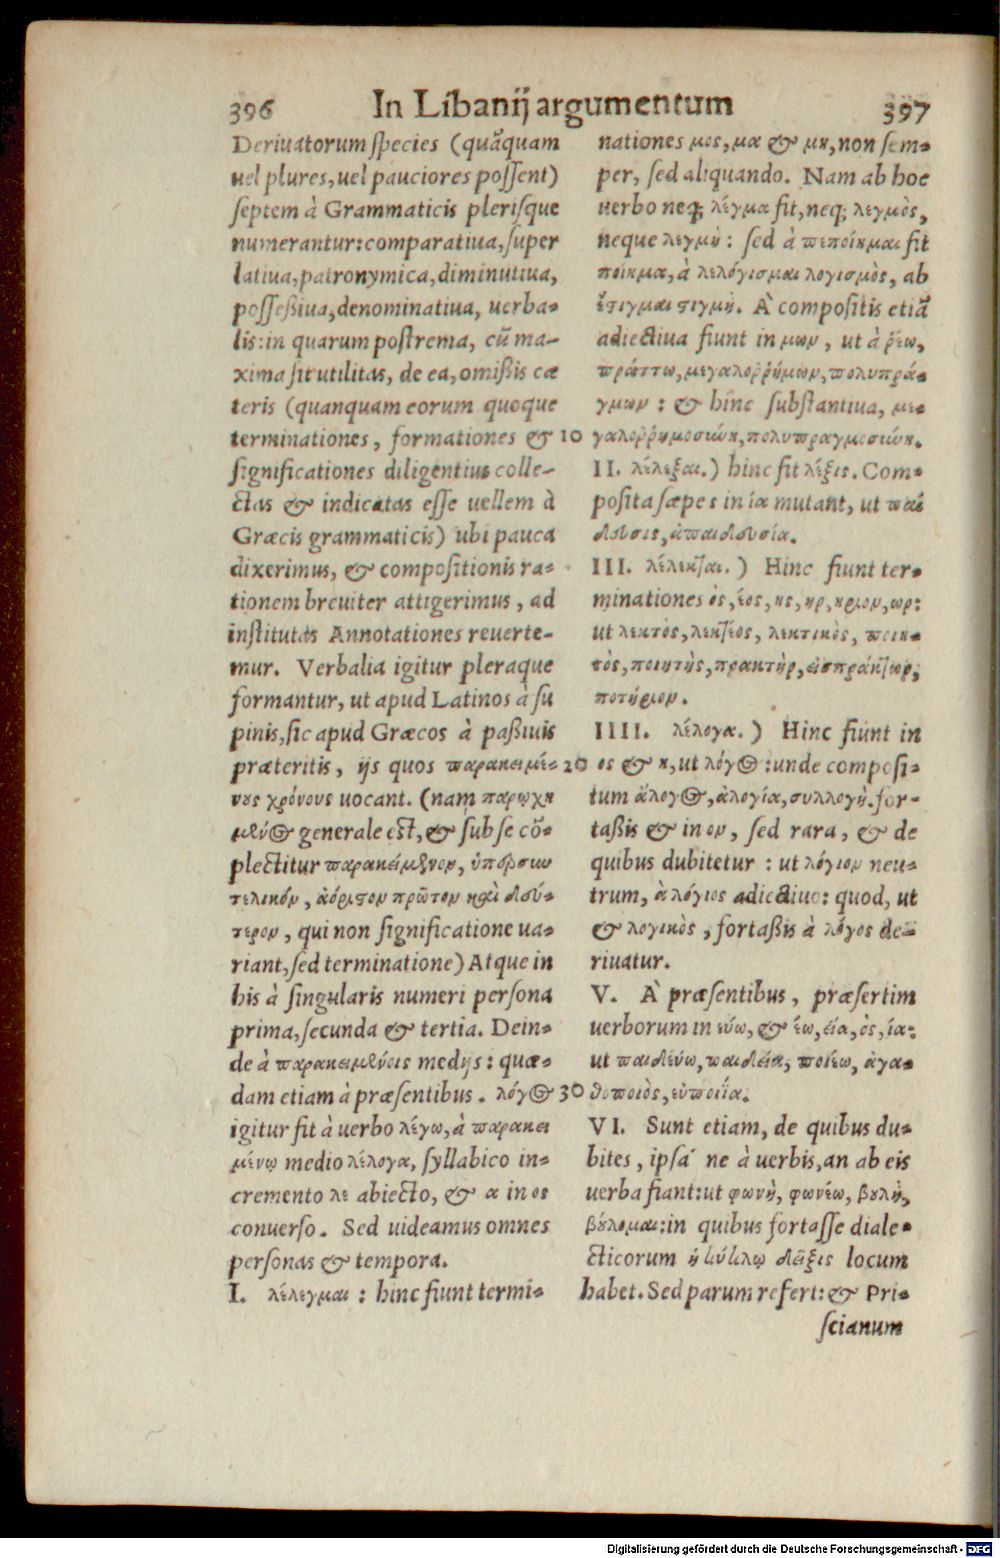 396 In Libanij argumentum 397
Deriuatorum species (quāquam
uel plures, uel pauciores possent)
septem à Grammaticis plerisque
numerantur: comparatiua, super
latiua, patronymica, diminutiua,
possessiua, denominatiua, uerba-
lis: in quarum postrema, cū ma-
xima sit utilitas, de ea, omissis cæ
teris (quanquam eorum quoque
terminationes, formationes & 10
significationes diligentius colle-
ctas & indicatas esse uellem à
Græcis grammaticis) ubi pauca
dixerimus, & compositionis ra-
tionem breuiter attigerimus, ad
institutas Annotationes reuerte-
mur. Verbalia igitur pleraque
formantur, ut apud Latinos à su
pinis, sic apud Græcos à passiuis
præteritis, ijs quos παρακειμέ- 20
νους χρόνους uocant. (nam παρῳχη
μένος generale est, & sub se cō-
plectitur παρακείμενον, ὑπερσυν
τελικόν, ἀόριστον πρῶτον καὶ δεύ-
τερον, qui non significatione ua-
riant, sed terminatione) Atque in
his à singularis numeri persona
prima, secunda & tertia. Dein-
de à παρακειμένοις medijs: quæ-
dam etiam à præsentibus. λόγος 30
igitur fit à uerbo λέγω, à παρακει
μένῳ medio λέλογα, syllabico in-
cremento λε abiecto, & α in ος
conuerso. Sed uideamus omnes
personas & tempora.
I. λέλεγμαι: hinc fiunt termi-
nationes μος, μα & μη, non sem-
per, sed aliquando. Nam ab hoc
uerbo neq; λέγμα fit, neq; λεγμὸς,
neque λεγμὴ: sed à πεποίημαι fit
ποίημα, à λελόγισμαι λογισμὸς, ab
ἔστιγμαι στιγμὴ. À compositis etiā
adiectiua fiunt in μων, ut à ῥέω,
πράττω, μεγαλοῤῥήμων, πολυπρά-
γμων: & hinc substantiua, με-
γαλοῤῥημοσύνη, πολυπραγμοσύνη.
II. λέλεξαι.) hinc fit λέξις. Com-
posita sæpe s in ία mutant, ut παί
δευσις, ἀπαιδευσία.
III. λέλεκται.) Hinc fiunt ter-
minationes ὸς, έος, ης, ηρ, ηριον, ωρ:
ut λεκτὸς, λεκτέος, λεκτικὸς, ποιη-
τὸς, ποιητὴς, πρακτὴρ, εἰσπράκτωρ,
ποτήριον.
IIII. λέλογα.) Hinc fiunt in
ος & η, ut λόγος: unde composi-
tum ἄλογος, ἀλογία, συλλογὴ. for-
tassis & in ον, sed rara, & de
quibus dubitetur: ut λόγιον neu-
trum, à λόγιος adiectiuo: quod, ut
& λογικὸς, fortassis à λόγος de-
riuatur.
V. À præsentibus, præsertim
uerborum in εύω, & έω, εία, ὸς, ία:
ut παιδεύω, παιδεία, ποιέω, ἀγα-
θοποιὸς, εὐποιΐα.
VI. Sunt etiam, de quibus du-
bites, ipsá ne à uerbis, an ab eis
uerba fiant: ut φωνὴ, φωνέω, βουλὴ,
βούλομαι: in quibus fortasse diale-
cticorum ἡ κύκλῳ δεῖξις locum
habet. Sed parum refert: & Pri-
scianum
Digitalisierung gefördert durch die Deutsche Forschungsgemeinschaft - DFG